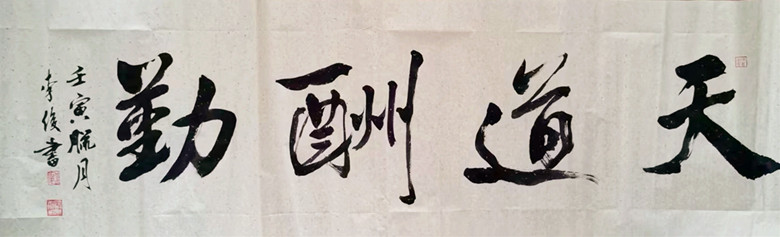 天道酬勤
壬寅臘月
李俊書